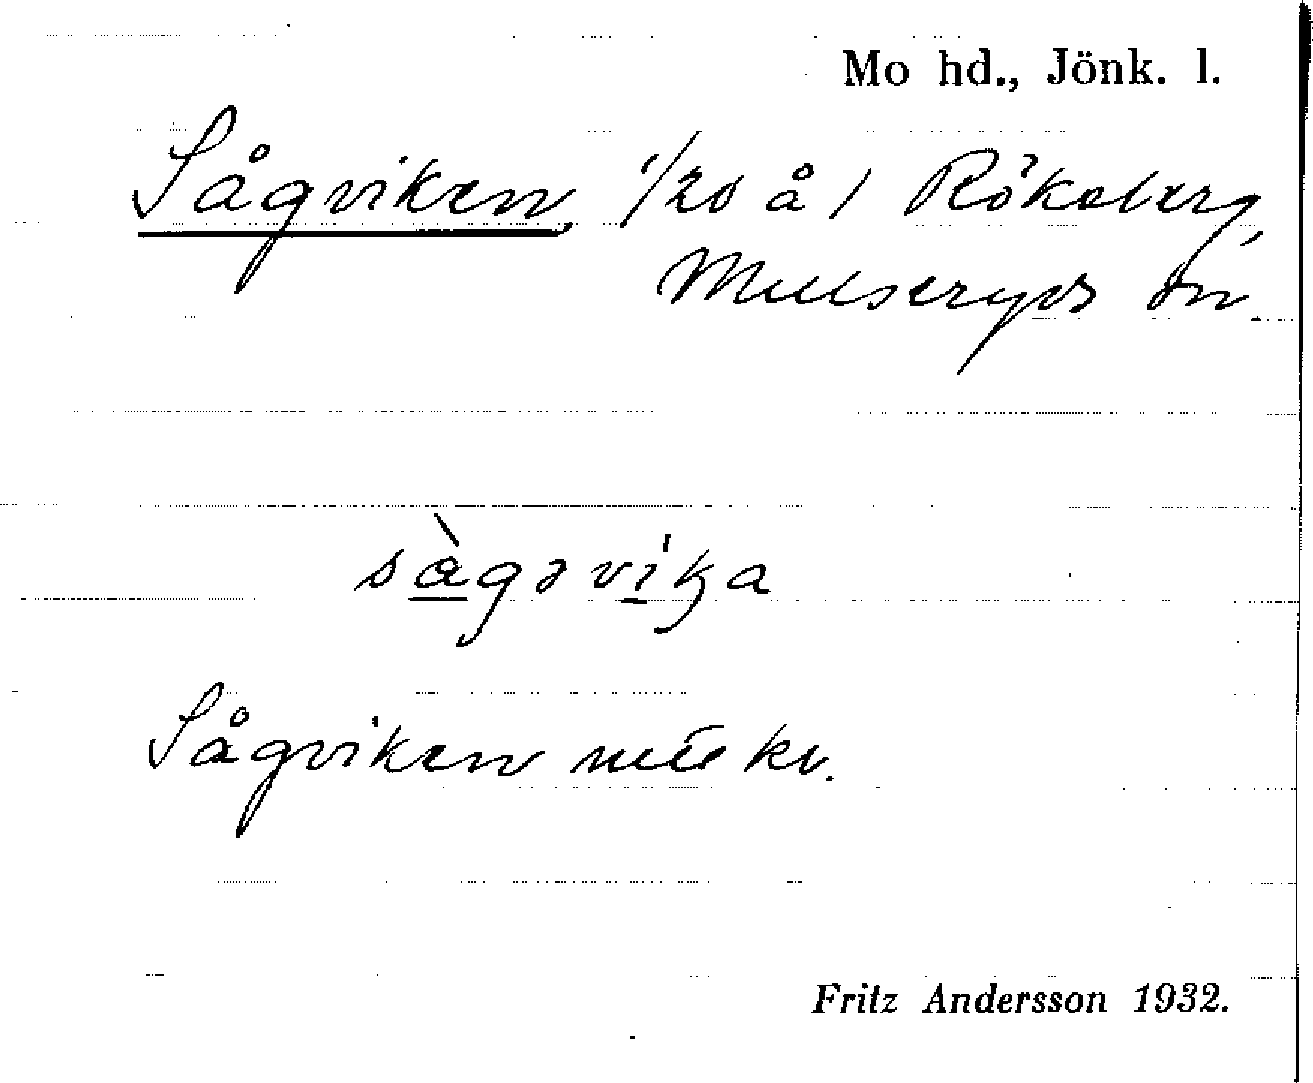 Mo hd., Jönk. l.
Sågviken, 1/20 å 1 Rökeberg,
Mulseryds sn.
sàgəvika
Sågviken mtékv.
Fritz Andersson 1932.